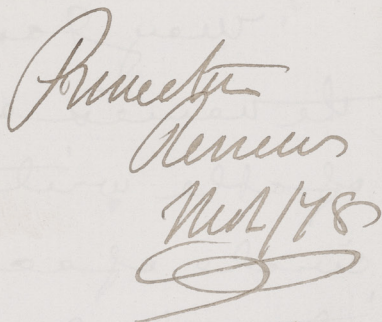 Princeton
Review
Mch/78